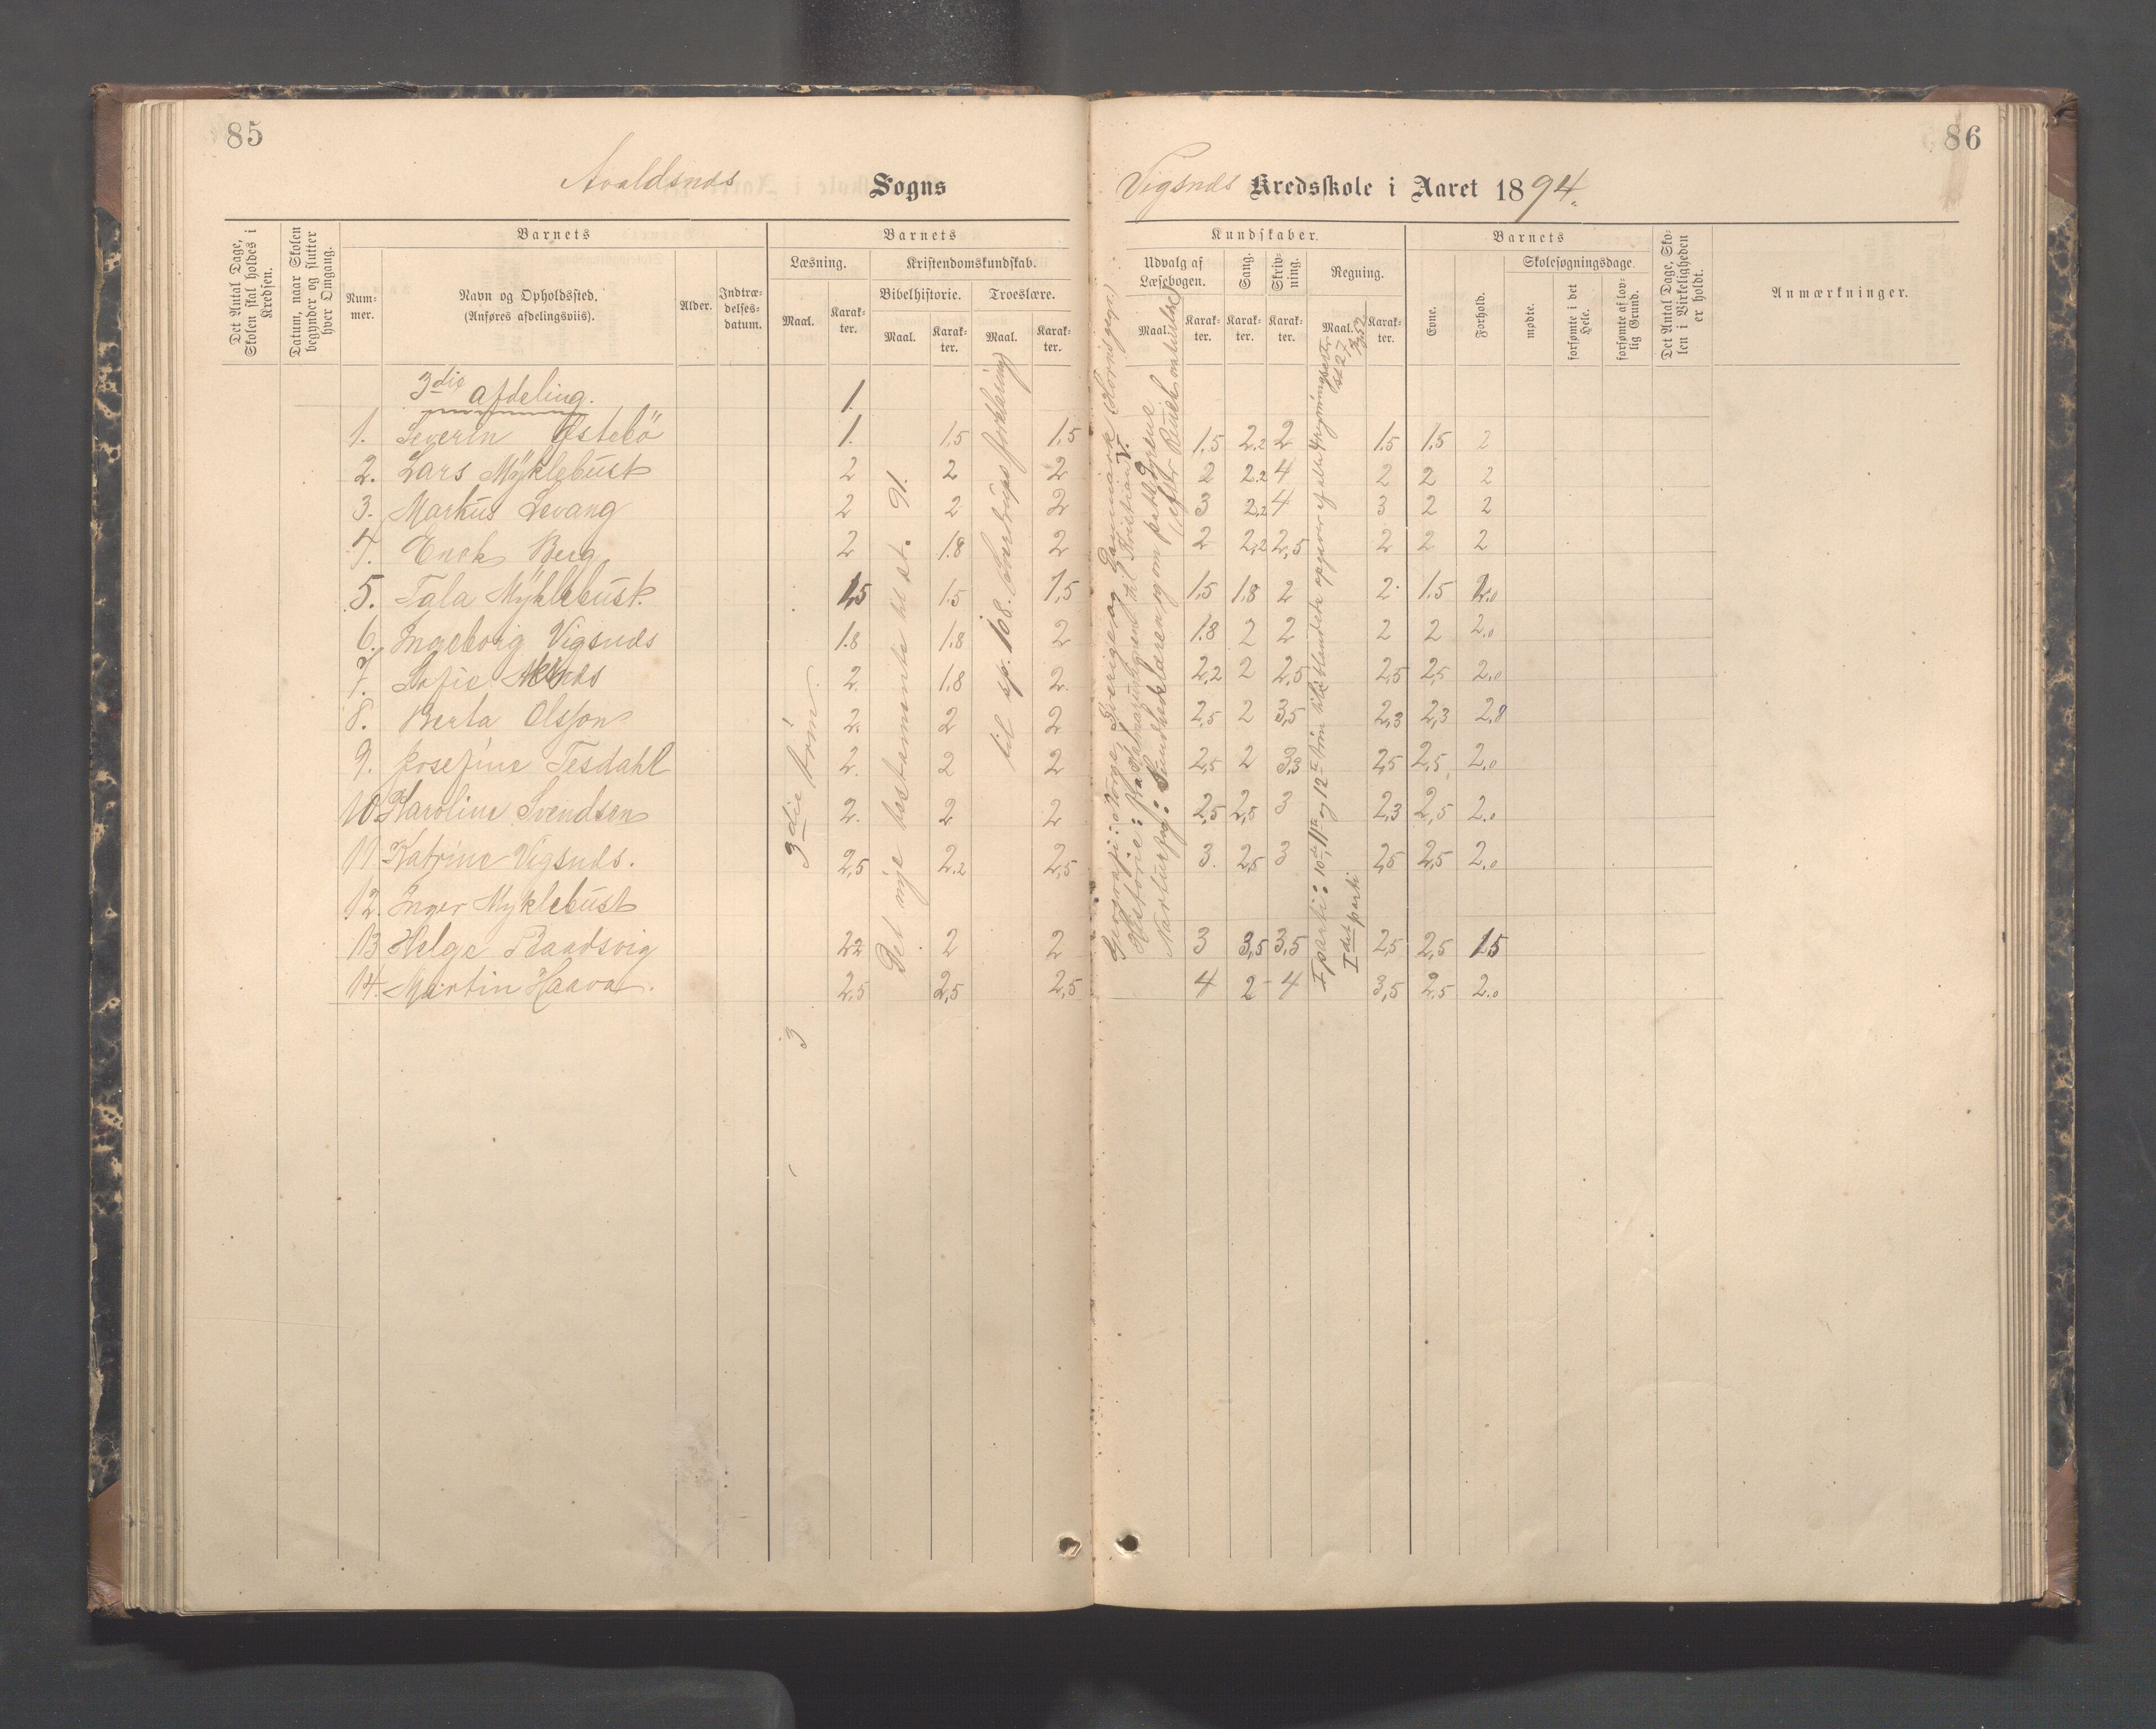 85
86
Avaldsnes Sogns
Vigsnes Kredsskole i Aaret 1894.
Det Antal Dage, Skolen skal holdes i Kredsen.
Datum, naar Skolen begynder og slutter hver Omgang.
Barnets
Num-mer.
Navn og Opholdssted. (Anføres afdelingsviis).
Alder.
Indtræ-delses-datum.
Barnets
Læsning.
Maal.
Karak-ter.
Kristendomskundskab.
Bibelhistorie.
Maal.
Karak-ter.
Troeslære.
Maal.
Karak-ter.
Kundskaber.
Udvalg af Læsebogen.
Maal.
Karak-ter.
Sang.
Karak-ter.
Skriv-ning.
Karak-ter.
Regning.
Maal.
Karak-ter.
Barnets
Evne.
Forhold.
Skolesøgningsdage.
mødte.
forsømte i det Hele.
forsømte af lov-lig Grund.
Det Antal Dage, Sko-len i Virkeligheden er holdt.
Anmærkninger.
3die afdeling. 1.
1. Severin Østebö 1. 1.5 1,5 1.5 2.2 2 1.5 1.5 2
2. Lars Myklebust 2 2 2 2 2.2 4 2 2 2
3. Markus Levang 2 2 2 3 2.2 4 3 2 2
4. Enok Berg 2 1.8 2 2 2,2 2,5 2 2 2
5. Tala Myklebust. 1,5 1.5 1,5 1,5 1.8 2 2 1.5 2.0
6. Ingeborg Vigsnes 1.8 1.8 2 1.8 2 2 2 2 2.0
7. Sofie 2. 1.8 2. 2,2 2 2,5 2,5 2,5 2.0
8. Berta Olsson 2. 2 2 2,5 2 3,5 2,3 2,3 2.8
9. Josefine Tesdahl 2. 2 2 2,5 2 3,3 2,5 2,5 2.0
10 Karoline Svendsen 2. 2 2 2,5 2,5 3 2,3 2,5 2.0
11. Katrine Vigsnes. 2,5 2.2 2,5 3. 2,5 3 2,5 2,5 2.0
12. Inger Myklebust
13 Helge Raadsvig 22 2 2 3 3,5 3,5 2,5 2,5 1.5
14. Martin Haava. 2.5 2,5 2,5 4 2 4 3,5 2,5 2.0
3die trin
3
Det nye testamente til st. 91.
til sp. 108. (Sverdrups forklaring)
Geografi: Norge, Sverige og Danmark (Horns geogr.)
Historie: til Kristian V.
Naturfag: Sundhedslæren og om pattedyrene (efter
I parti: 10de, 11te og 12te trin blandede opgaver
I det parti